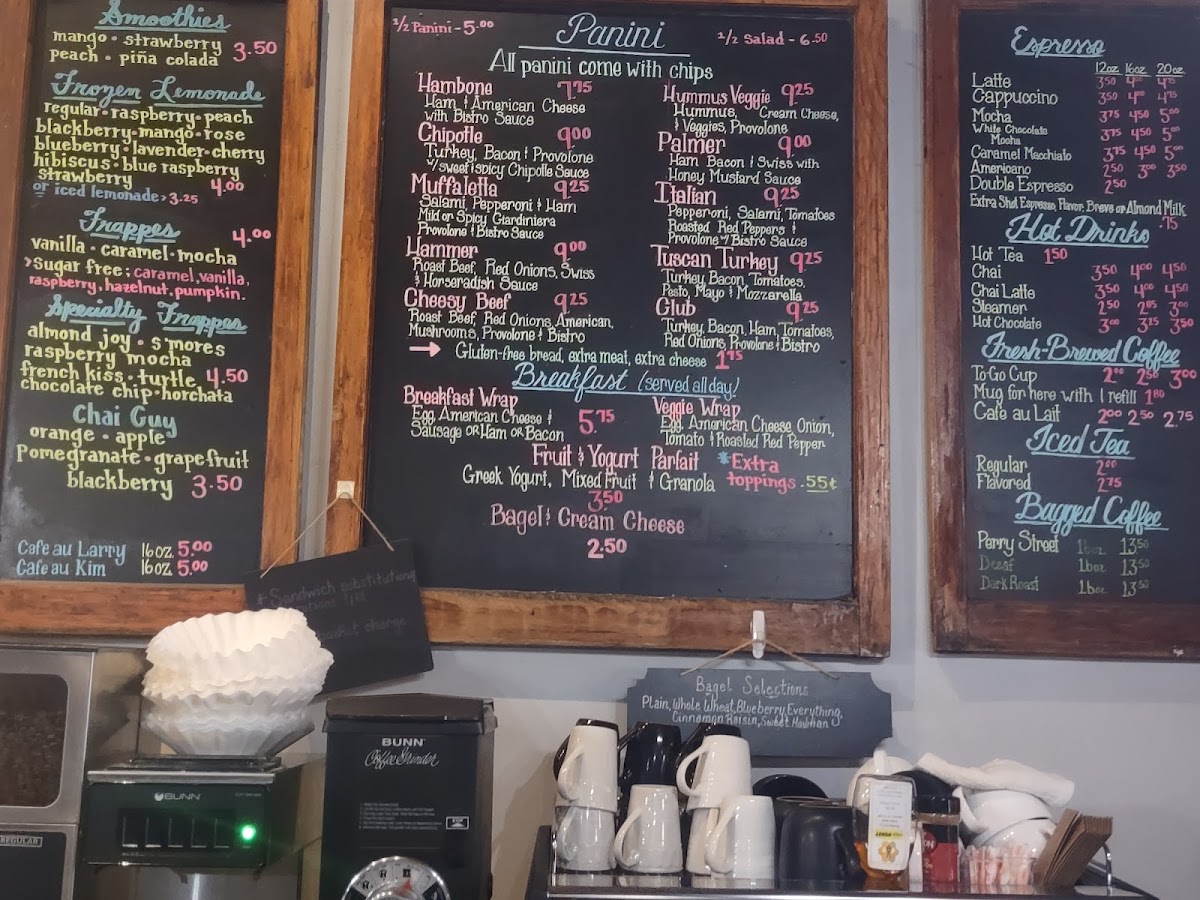 Smoothies
mango • strawberry
peach • piña colada 3.50
Frozen Lemonade
regular • raspberry • peach
blackberry • mango • rose
blueberry • lavender • cherry
hibiscus • blue raspberry
strawberry 4.00
or iced lemonade > 3.25
Frappes
4.00
vanilla • caramel • mocha
>Sugar free; caramel, vanilla,
raspberry, hazelnut, pumpkin.
Specialty Frappes
almond joy • s'mores
raspberry mocha
french kiss • turtle 4.50
chocolate chip • horchata
Chai Guy
orange • apple
Pomegranate • grapefruit
blackberry 3.50
Cafe au Larry 16oz. 5.00
Cafe au Kim 16oz. 5.00
1/2 Panini - 5.00
Panini
1/2 Salad - 6.50
All panini come with chips
Hambone 7.75
Ham & American Cheese
with Bistro Sauce
Chipotle 9.00
Turkey, Bacon & Provolone
w/ sweet & spicy Chipotle Sauce
Muffaletta 9.25
Salami, Pepperoni & Ham
Mild or Spicy Giardiniera
Provolone & Bistro Sauce
Hammer 9.00
Roast Beef, Red Onions, Swiss
& Horseradish Sauce
Cheesy Beef 9.25
Roast Beef, Red Onions, American,
Mushrooms, Provolone & Bistro
Hummus Veggie 9.25
Hummus, Cream Cheese,
& Veggies, Provolone
Palmer 9.00
Ham Bacon & Swiss with
Honey Mustard Sauce
Italian 9.25
Pepperoni, Salami, Tomatoes
Roasted Red Peppers &
Provolone w/ Bistro Sauce
Tuscan Turkey 9.25
Turkey, Bacon, Tomatoes,
Pesto, Mayo & Mozzarella
Glub 9.25
Turkey, Bacon, Ham, Tomatoes,
Red Onions, Provolone & Bistro
→ Gluten-free bread, extra meat, extra cheese 1.75
Breakfast (served all day)
Breakfast Wrap
Egg, American Cheese & 5.75
Sausage OR Ham OR Bacon
Veggie Wrap
Egg, American Cheese, Onion,
Tomato & Roasted Red Pepper
Fruit & Yogurt Parfait
Greek Yogurt, Mixed Fruit & Granola
3.50
*Extra
toppings .55¢
Bagel & Cream Cheese
2.50
Espresso
12oz 16oz 20oz
Latte 3.50 4.00 4.75
Cappuccino 3.50 4.00 4.75
Mocha 3.75 4.50 5.00
White Chocolate
Mocha 3.75 4.50 5.00
Caramel Macchiato 3.75 4.50 5.00
Americano 2.50 3.00 3.50
Double Espresso 2.50
Extra Shot Espresso, Flavor, Breve or Almond Milk
.75
Hot Drinks
Hot Tea 1.50
Chai 3.50 4.00 4.50
Chai Latte 3.50 4.00 4.50
Steamer 2.50 2.75 3.00
Hot Chocolate 3.00 3.25 3.50
Fresh-Brewed Coffee
To-Go Cup 2.00 2.50 3.00
Mug for here with 1 refill 1.80
Cafe au Lait 2.00 2.50 2.75
Iced Tea
Regular 2.00
Flavored 2.75
Bagged Coffee
Perry Street 13.50
Decaf 1 b oz. 13.50
Dark Roast 1 b oz. 13.50
* Sandwich substitutions
charge
Bagel Selections
Plain, Whole Wheat, Blueberry, Everything,
Cinnamon Raisin, Sweet Hawaiian
BUNN
Coffee Grinder
BUNN
REGULAR